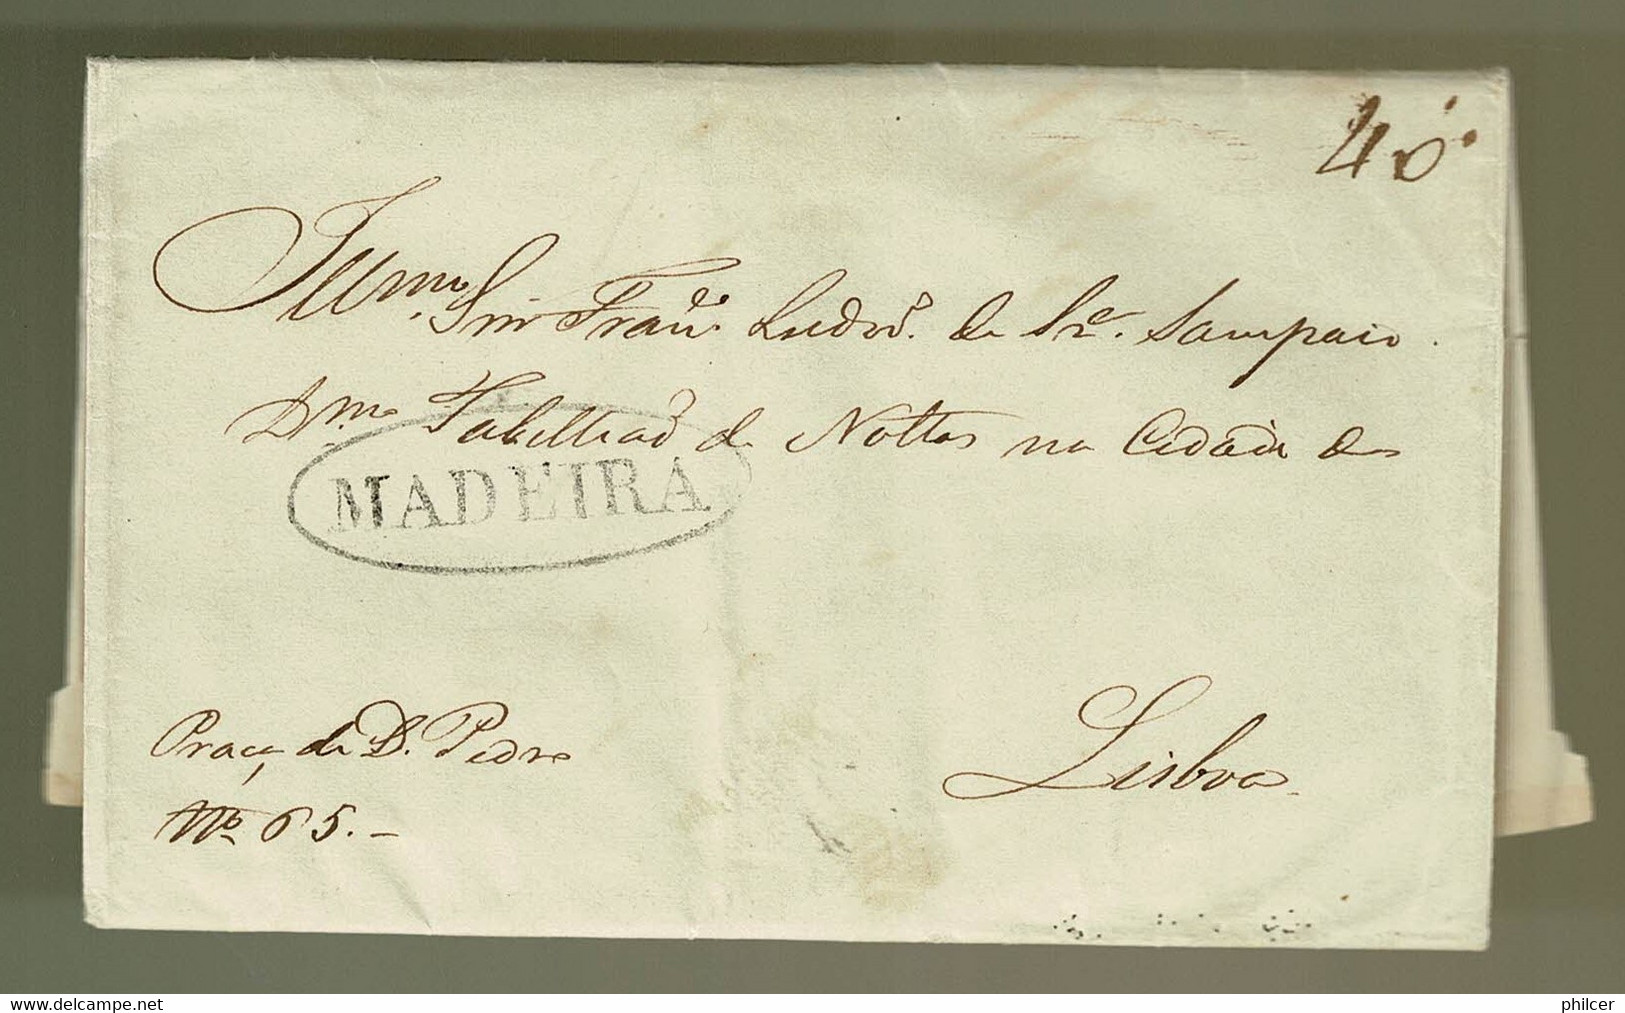 40
Illmo. Snr. Franco. Ludro. de Sza. Sampaio.
Dmo. Tabelliaõ de Nottas na Cidade de
MADEIRA
Lisboa
Praça de D. Pedro
No. 65.-
www.delcampe.net
philcer